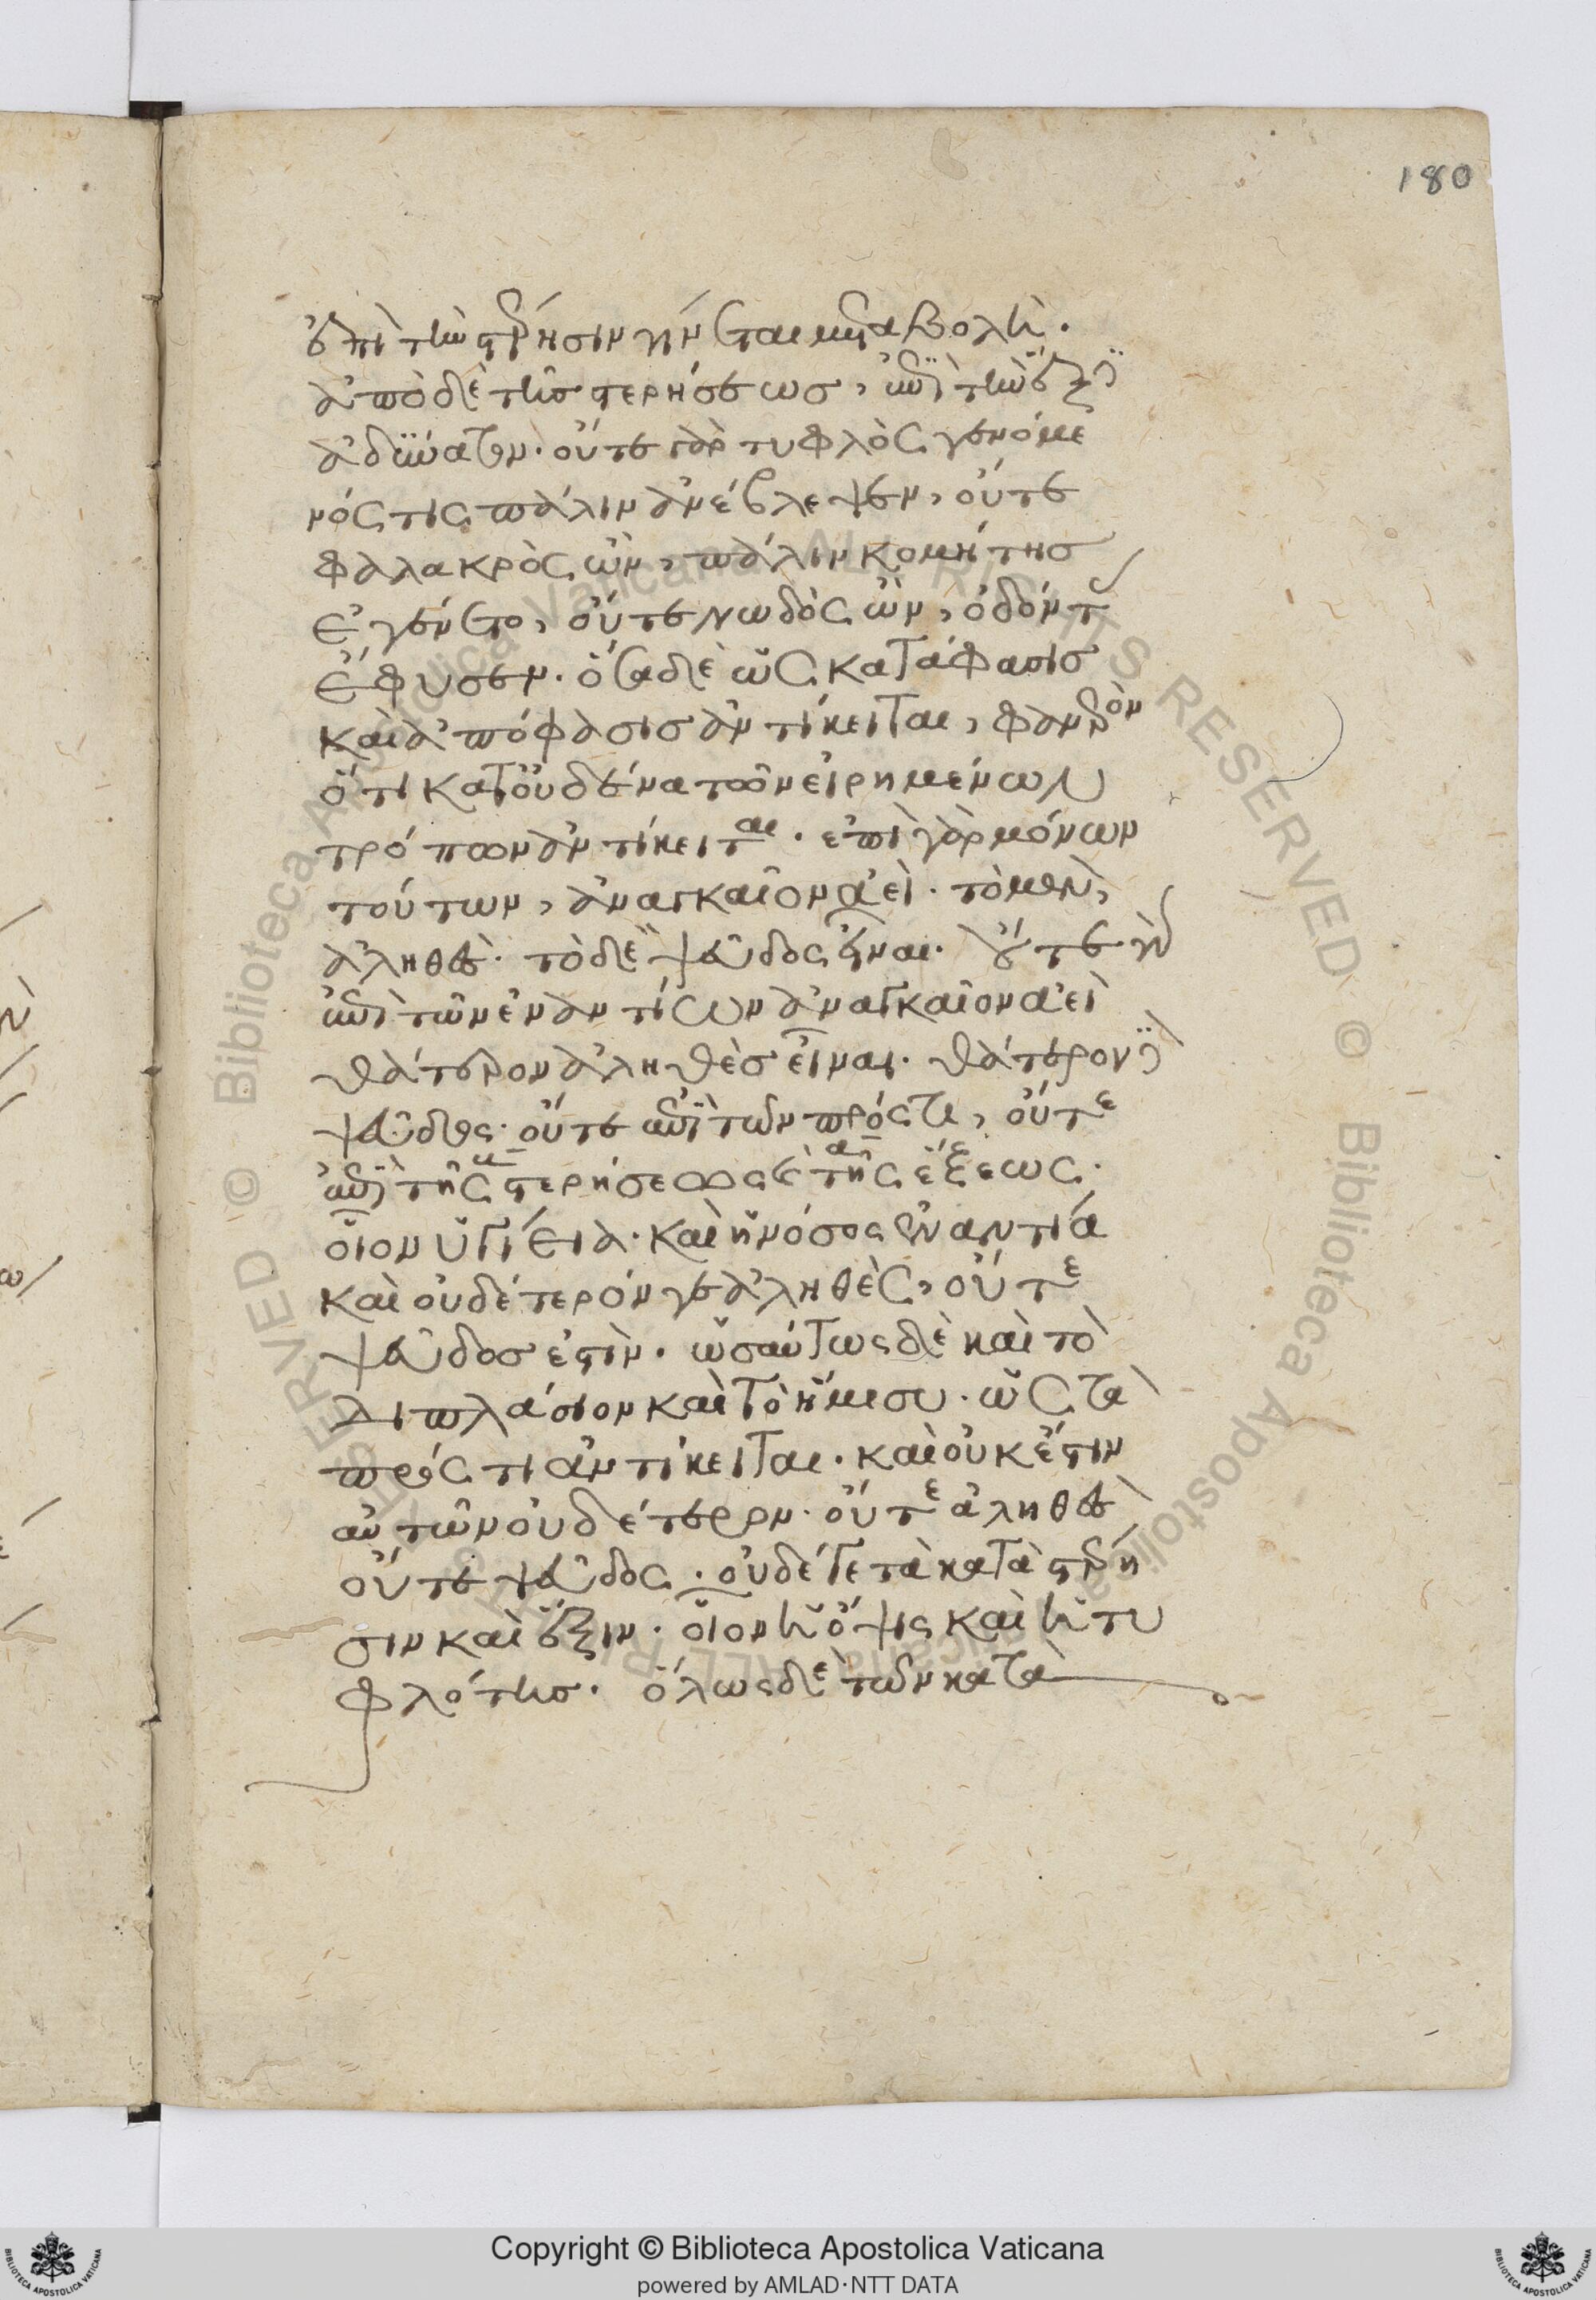 180
ἐπὶ τὴν στέρησιν γίνεται μεταβολή·
ἀπὸ δὲ τῆς στερήσεως, ἐπὶ τὴν ἕξιν
ἀδύνατον· οὔτε γὰρ τυφλὸς γενόμε
νός τις πάλιν ἀνέβλεψεν, οὔτε
φαλακρὸς ὢν, πάλιν κομήτης
ἐγένετο, οὔτε νωδὸς ὢν, ὀδόντας
ἔφυσεν. ὅσα δὲ ὡς κατάφασις
καὶ ἀπόφασις ἀντίκειται, φανερὸν
ὅτι κατ οὐδένα τῶν εἰρημένων
τρόπων ἀντίκειται. ἐπὶ γὰρ μόνων
τούτων, ἀναγκαῖον ἀεὶ. τὸ μὲν,
ἀληθὲς. τὸ δὲ ψεῦδος εἶναι. οὔτε γὰρ
ἐπὶ τῶν ἐναντίων ἀναγκαῖον ἀεὶ
θάτερον ἀληθὲς εἶναι. θάτερον δὲ
ψεῦδος. οὔτε ἐπὶ τῶν πρός τι, οὔτε
ἐπὶ τῆς στερήσεως καὶ τῆς ἕξεως.
οἷον ὑγίεια. καὶ ἡ νόσος ἐναντία
καὶ οὐδέτερόν γε ἀληθὲς, οὔτε
ψεῦδος ἐστὶν. ὡσαύτως δὲ καὶ τὸ
διπλάσιον καὶ τὸ ἥμισυ. ὡς τὰ
πρός τι ἀντίκειται. καὶ οὐκ ἔστιν
αὐτῶν οὐδέτερον. οὔτε ἀληθὲς
οὔτε ψεῦδος. οὐδέ γε τὰ κατὰ στέρη
σιν καὶ ἕξιν. οἷον ἡ ὄψις καὶ ἡ τυ
φλότης. ὅλως δὲ τῶν κατὰ
Copyright © Biblioteca Apostolica Vaticana
powered by AMLAD·NTT DATA